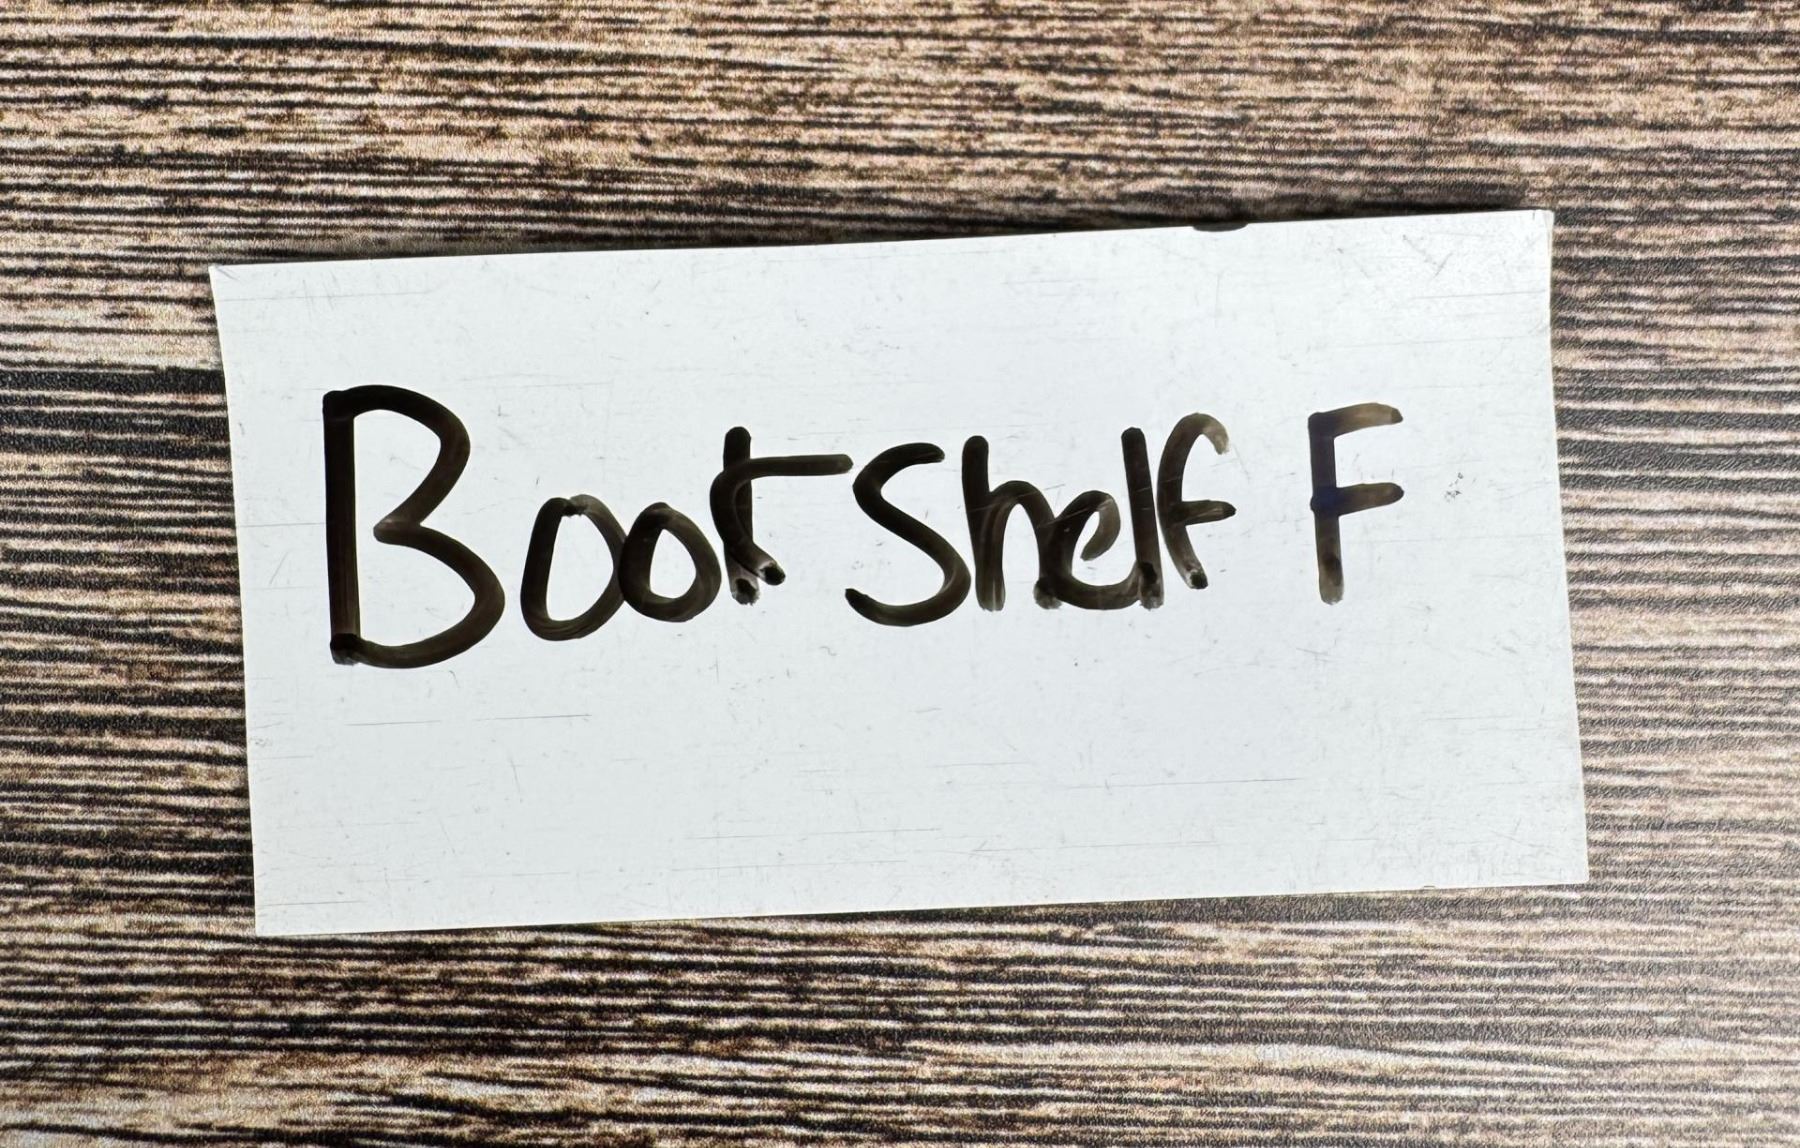 Bookshelf F